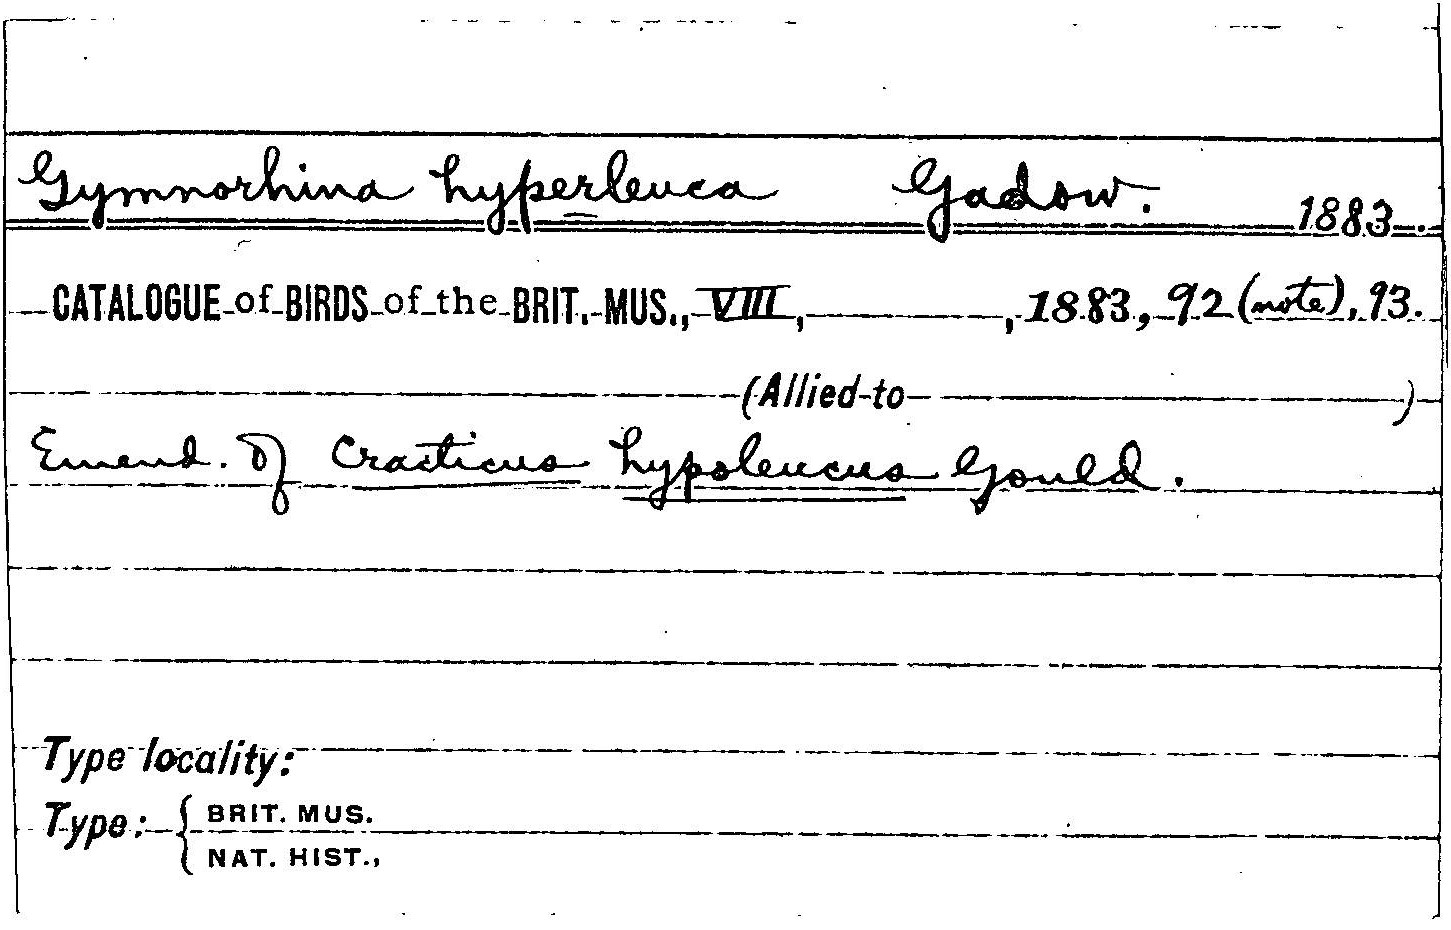 Gymnorhina hyperleuca Gadow. 1883.
CATALOGUE of BIRDS of the BRIT. MUS., VIII, , 1883, 92 (note), 93.
(Allied to )
Emend. of Cracticus hypoleucus Gould.
Type locality:
Type: { BRIT. MUS.
NAT. HIST.,